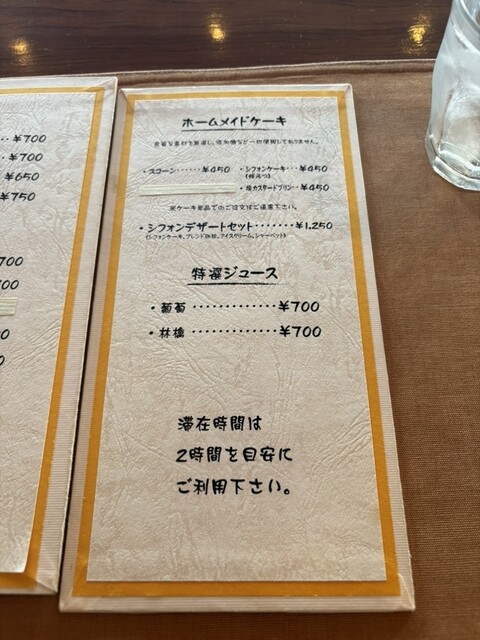 ‥¥700
‥¥700
‥¥650
‥¥750
700
700
0
0
ホームメイドケーキ
・スコーン‥‥‥¥450
・シフォンケーキ‥‥¥450
・焼カスタードプリン‥¥450
※ケーキ単品でのご注文はご遠慮下さい。
・シフォンデザートセット‥‥‥‥¥1,250
(シフォンケーキ、ブレンド珈琲、アイスクリーム、シャーベット)
特選ジュース
・葡萄‥‥‥‥‥‥¥700
・林檎‥‥‥‥‥‥¥700
滞在時間は
2時間を目安に
ご利用下さい。